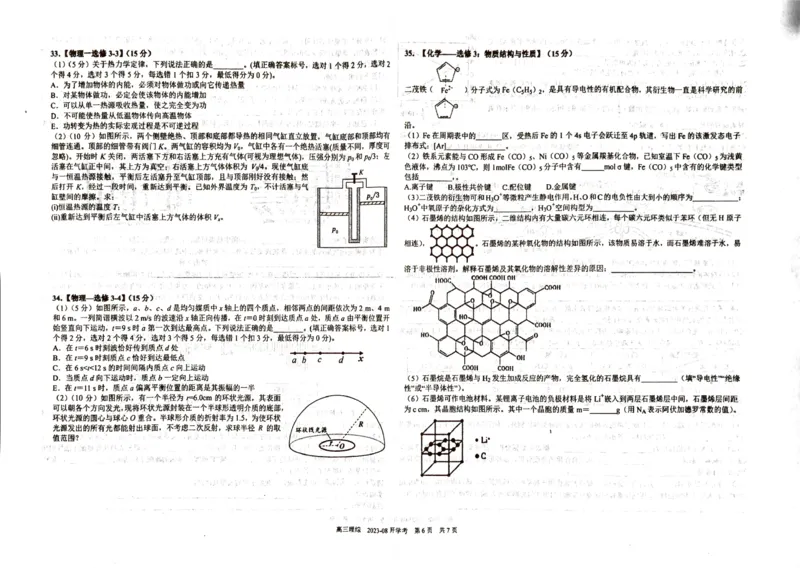 33.【物理—选修3-3】(15分)
(1)(5分)关于热力学定律，下列说法正确的是______。(填正确答案标号，选对1个得2分，选对2
个得4分，选对3个得5分，每选错1个扣3分，最低得分为0分)。
A．为了增加物体的内能，必须对物体做功或向它传递热量
B．对某物体做功，必定会使该物体的内能增加
C．可以从单一热源吸收热量，使之完全变为功
D．不可能使热量从低温物体传向高温物体
E．功转变为热的实际宏观过程是不可逆过程
(2)(10分)如图所示，两个侧壁绝热、顶部和底部都导热的相同气缸直立放置，气缸底部和顶部均有
细管连通，顶部的细管带有阀门K。两气缸的容积均为V₀，气缸中各有一个绝热活塞(质量不同，厚度可
忽略)。开始时K关闭，两活塞下方和右活塞上方充有气体(可视为理想气体)，压强分别为p₀和p₀/3；左
活塞在气缸正中间，其上方为真空；右活塞上方气体体积为V₀/4。现使气缸底
与一恒温热源接触，平衡后左活塞升至气缸顶部，且与顶部刚好没有接触；然
后打开K，经过一段时间，重新达到平衡。已知外界温度为T₀，不计活塞与气
缸壁间的摩擦。求：
(i)恒温热源的温度T；
(ii)重新达到平衡后左气缸中活塞上方气体的体积Vₓ。
K
p₀/3
p₀
34.【物理—选修3-4】(15分)
(1)(5分)如图所示，a、b、c、d是均匀媒质中x轴上的四个质点，相邻两点的间距依次为2 m、4 m
和6 m。一列简谐横波以2 m/s的波速沿x轴正向传播，在t=0时刻到达质点a处，质点a由平衡位置开
始竖直向下运动，t=9 s时a第一次到达最高点。下列说法正确的是______。(填正确答案标号，选对1
个得2分，选对2个得4分，选对3个得5分，每选错1个扣3分，最低得分为0分)。
A．在t=6 s时刻波恰好传到质点d处
B．在t=9 s时刻质点c恰好到达最低点
C．在6 s<t<12 s的时间间隔内质点c向上运动
D．当质点d向下运动时，质点b一定向上运动
E．在t=11 s时，质点a偏离平衡位置的距离是其振幅的一半
a b c d x
(2)(10分)如图所示，有一个半径为r=6.0cm的环状光源，其表面
可以朝各个方向发光，现将环状光源封装在一个半球形透明介质的底部，
环状光源的圆心与球心O重合。半球形介质的折射率为1.5，为使环状
光源发出的所有光都能射出球面，不考虑二次反射，求球半径R的取
值范围？
环状线光源
R
r
O
35.【化学——选修3：物质结构与性质】(15分)
二茂铁( Fe²⁺ )分子式为Fe(C₅H₅)₂，是具有导电性的有机配合物，其衍生物一直是科学研究的前
沿。
(1)Fe在周期表中的______区，受热后Fe的1个4s电子会跃迁至4p轨道，写出Fe的该激发态电子
排布式：[Ar]____________。
(2)铁系元素能与CO形成Fe(CO)₅、Ni(CO)₅等金属羰基化合物，已知室温下Fe(CO)₅为浅黄
色液体，沸点为103℃，则1molFe(CO)₅分子中含有______molσ键，Fe(CO)₅中含有的化学键类型
包括______。
A.离子键 B.极性共价键 C.配位键 D.金属键
(3)二茂铁的衍生物可和H₃O⁺等微粒产生静电作用，H、O和C的电负性由大到小的顺序为____________；
H₃O⁺中氧原子的杂化方式为________，H₃O⁺空间构型为________。
(4)石墨烯的结构如图所示，二维结构内有大量碳六元环相连，每个碳六元环类似于苯环(但无H原子
相连)，，石墨烯的某种氧化物的结构如图所示，该物质易溶于水，而石墨烯难溶于水，易
溶于非极性溶剂。解释石墨烯及其氧化物的溶解性差异的原因：____________。
HOOC COOH COOH OH
COOH
HO
COOH
HO
OH
COOH COOH
(5)石墨烷是石墨烯与H₂发生加成反应的产物，完全氢化的石墨烷具有______(填“导电性”“绝缘
性”或“半导体性”)。
(6)石墨烯可作电池材料。某锂离子电池的负极材料是将Li⁺嵌入到两层石墨烯层中间，石墨烯层间距
为c cm，其晶胞结构如图所示。其中一个晶胞的质量m=______g(用N_A表示阿伏加德罗常数的值)。
Li⁺
C
高三理综 2023-08开学考 第6页 共7页